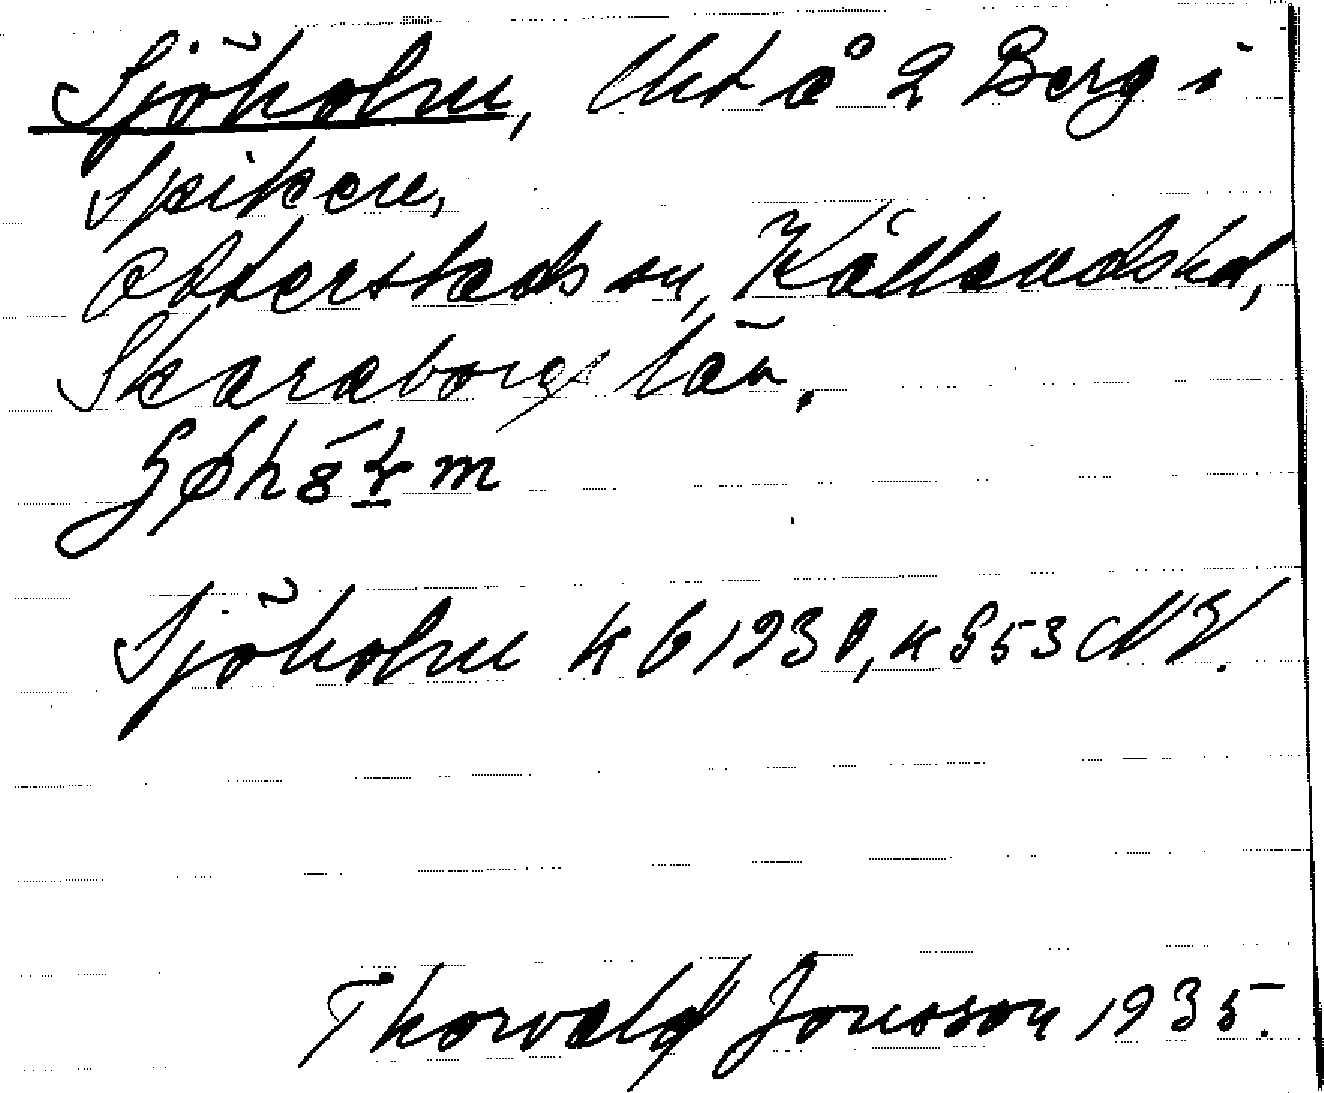 Sjöholm, lht å 2 Berg i
Spiken,
Otterstads sn, Kållandshd,
Skaraborgs län.
Sjöholm kb 1930, k G 53 NV.
Thorvald Jonsson 1935.